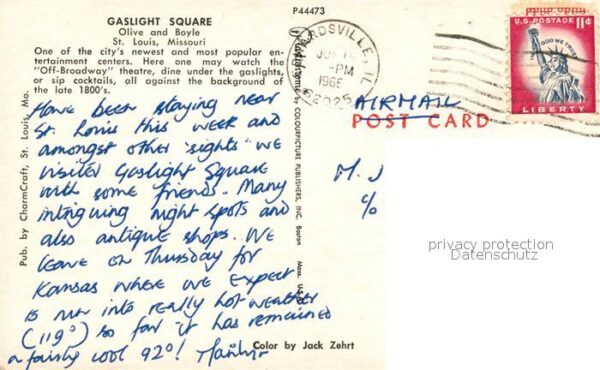 P44473
GASLIGHT SQUARE
Olive and Boyle
St. Louis, Missouri
One of the city's newest and most popular en-
tertainment centers. Here one may watch the
"Off-Broadway" theatre, dine under the gaslights,
or sip cocktails, all against the background of
the late 1800's.
Have been staying near
St Louis this week and
amongst other 'sights' we
visited Gaslight Square
with some friends. Many
intriguing night spots and
also antique shops. We
leave on Thursday for
Kansas where we expect
to run into really hot weather
(119°) so far it has remained
a fairly cool 92°!
Color by Jack Zehrt
Pub. by CharmCraft, St. Louis, Mo.
by COLOURPICTURE PUBLISHERS, INC. Boston Mass. U.S.A.
RDSVILLE, IL
PM
62025
U.S. POSTAGE 11¢
IN GOD WE TRUST
LIBERTY
AIRMAIL
POST CARD
M. J
c/o
privacy protection
Datenschutz